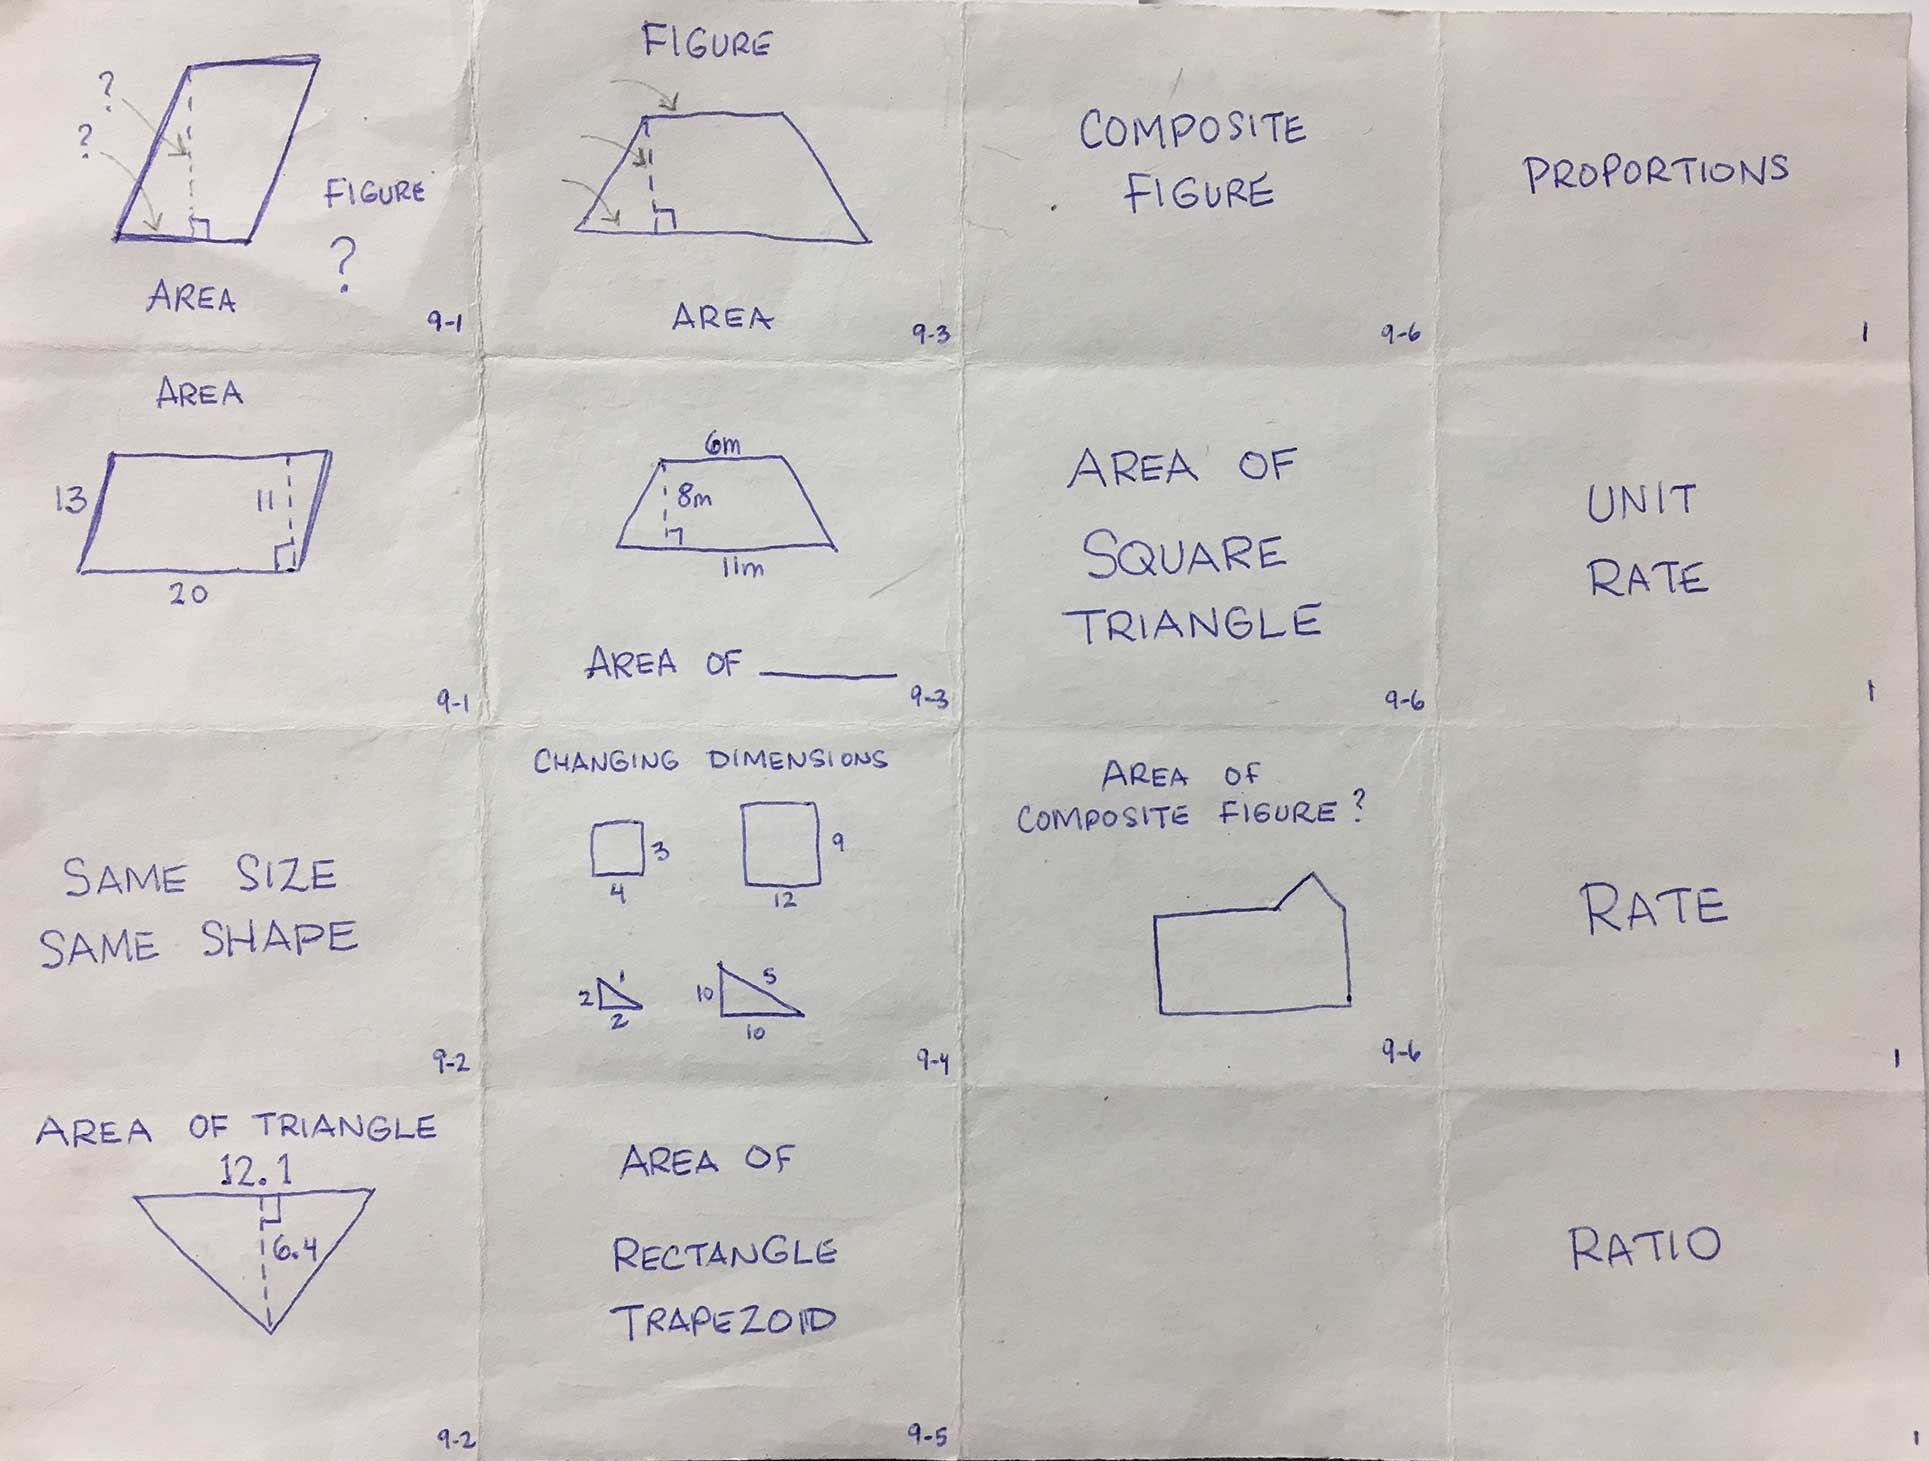 ?
?
FIGURE
?
AREA
9-1
FIGURE
AREA
9-3
COMPOSITE
FIGURE
9-6
PROPORTIONS
1
AREA
13
11
20
9-1
6m
8m
11m
AREA OF
9-3
AREA OF
SQUARE
TRIANGLE
9-6
UNIT
RATE
1
SAME SIZE
SAME SHAPE
9-2
CHANGING DIMENSIONS
3
4
9
12
2
1
2
10
5
10
9-4
AREA OF
COMPOSITE FIGURE?
9-6
RATE
1
AREA OF TRIANGLE
12.1
6.4
9-2
AREA OF
RECTANGLE
TRAPEZOID
9-5
RATIO
1